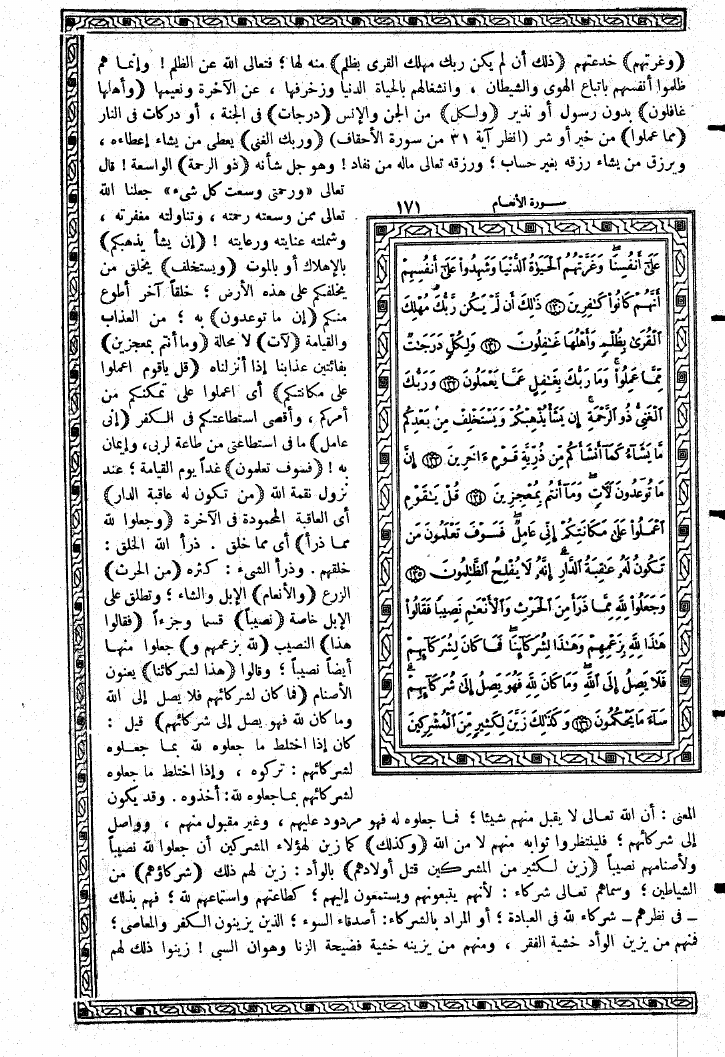 (وغرتهم) خدعتهم (ذلك أن لم يكن ربك مهلك القرى بظلم) منه لها؛ فتعالى الله عن الظلم! وإنما هم
ظلموا أنفسهم باتباع الهوى والشيطان، وانشغالهم بالحياة الدنيا وزخرفها، عن الآخرة ونعيمها (وأهلها
غافلون) بدون رسول أو نذير (ولكل) من الجن والإنس (درجات) فى الجنة، أو دركات فى النار
(مما عملوا) من خير أو شر (انظر آية ٣١ من سورة الأحقاف) (وربك الغنى) يعطى من يشاء إعطاءه،
ويرزق من يشاء رزقه بغير حساب؛ ورزقه تعالى ماله من نفاد! وهو جل شأنه (ذو الرحمة) الواسعة! قال
تعالى «ورحمتى وسعت كل شىء» جعلنا الله
تعالى ممن وسعته رحمته، وتناولته مغفرته،
وشملته عنايته ورعايته! (إن يشأ يذهبكم)
بالإهلاك أو بالموت (ويستخلف) يخلق من
يخلفكم على هذه الأرض؛ خلقاً آخر أطوع
منكم (إن ما توعدون) به؛ من العذاب
والقيامة (لآت) لا محالة (وما أنتم بمعجزين)
بفائتين عذابنا إذا أنزلناه (قل ياقوم اعملوا
على مكانتكم) أى اعملوا على تمكنكم من
أمركم، وأقصى استطاعتكم فى الكفر (إنى
عامل) ما فى استطاعتى من طاعة لربى، وإيمان
به! (فسوف تعلمون) غداً يوم القيامة؛ عند
نزول نقمة الله (من تكون له عاقبة الدار)
أى العاقبة المحمودة فى الآخرة (وجعلوا لله
مما ذرأ) أى مما خلق. ذرأ الله الخلق:
خلقهم. وذرأ الشىء: كثره (من الحرث)
الزرع (والأنعام) الإبل والشاء؛ وتطلق على
الإبل خاصة (نصيباً) قسما وجزءاً (فقالوا
هذا) النصيب (لله بزعمهم و) جعلوا منها
أيضاً نصيباً؛ وقالوا (هذا لشركائنا) يعنون
الأصنام (فما كان لشركائهم فلا يصل إلى الله
وما كان لله فهو يصل إلى شركائهم) قيل:
كان إذا اختلط ما جعلوه لله بما جعلوه
لشركائهم: تركوه، وإذا اختلط ما جعلوه
لشركائهم بما جعلوه لله: أخذوه. وقد يكون
سورة الأنعام ١٧١
عَلَىٰٓ أَنفُسِنَا وَغَرَّتْهُمُ ٱلْحَيَوٰةُ ٱلدُّنْيَا وَشَهِدُوا۟ عَلَىٰٓ أَنفُسِهِمْ
أَنَّهُمْ كَانُوا۟ كَـٰفِرِينَ ١٣٠ ذَٰلِكَ أَن لَّمْ يَكُن رَّبُّكَ مُهْلِكَ
ٱلْقُرَىٰ بِظُلْمٍ وَأَهْلُهَا غَـٰفِلُونَ ١٣١ وَلِكُلٍّ دَرَجَـٰتٌ
مِّمَّا عَمِلُوا۟ وَمَا رَبُّكَ بِغَـٰفِلٍ عَمَّا يَعْمَلُونَ ١٣٢ وَرَبُّكَ
ٱلْغَنِىُّ ذُو ٱلرَّحْمَةِ إِن يَشَأْ يُذْهِبْكُمْ وَيَسْتَخْلِفْ مِنۢ بَعْدِكُم
مَّا يَشَآءُ كَمَآ أَنشَأَكُم مِّن ذُرِّيَّةِ قَوْمٍ ءَاخَرِينَ ١٣٣ إِنَّ
مَا تُوعَدُونَ لَـَٔاتٍ وَمَآ أَنتُم بِمُعْجِزِينَ ١٣٤ قُلْ يَـٰقَوْمِ
ٱعْمَلُوا۟ عَلَىٰ مَكَانَتِكُمْ إِنِّى عَامِلٌ فَسَوْفَ تَعْلَمُونَ مَن
تَكُونُ لَهُۥ عَـٰقِبَةُ ٱلدَّارِ إِنَّهُۥ لَا يُفْلِحُ ٱلظَّـٰلِمُونَ ١٣٥
وَجَعَلُوا۟ لِلَّهِ مِمَّا ذَرَأَ مِنَ ٱلْحَرْثِ وَٱلْأَنْعَـٰمِ نَصِيبًا فَقَالُوا۟
هَـٰذَا لِلَّهِ بِزَعْمِهِمْ وَهَـٰذَا لِشُرَكَآئِنَا فَمَا كَانَ لِشُرَكَآئِهِمْ
فَلَا يَصِلُ إِلَى ٱللَّهِ وَمَا كَانَ لِلَّهِ فَهُوَ يَصِلُ إِلَىٰ شُرَكَآئِهِمْ
سَآءَ مَا يَحْكُمُونَ ١٣٦ وَكَذَٰلِكَ زَيَّنَ لِكَثِيرٍ مِّنَ ٱلْمُشْرِكِينَ
المعنى: أن الله تعالى لا يقبل منهم شيئا؛ فما جعلوه له فهو مردود عليهم، وغير مقبول منهم، وواصل
إلى شركائهم؛ فلينتظروا ثوابه منهم لا من الله (وكذلك) كما زين لهؤلاء المشركين أن جعلوا لله نصيباً
ولأصنامهم نصيباً (زين لكثير من المشركين قتل أولادهم) بالوأد: زين لهم ذلك (شركاؤهم) من
الشياطين؛ وسماهم تعالى شركاء: لأنهم يتبعونهم ويستمعون إليهم؛ كطاعتهم واستماعهم لله؛ فهم بذلك
ـ فى نظرهم ـ شركاء لله فى العبادة؛ أو المراد بالشركاء: أصدقاء السوء؛ الذين يزينون الكفر والمعاصى؛
فمنهم من يزين الوأد خشية الفقر، ومنهم من يزينه خشية فضيحة الزنا وهوان السبى! زينوا ذلك لهم